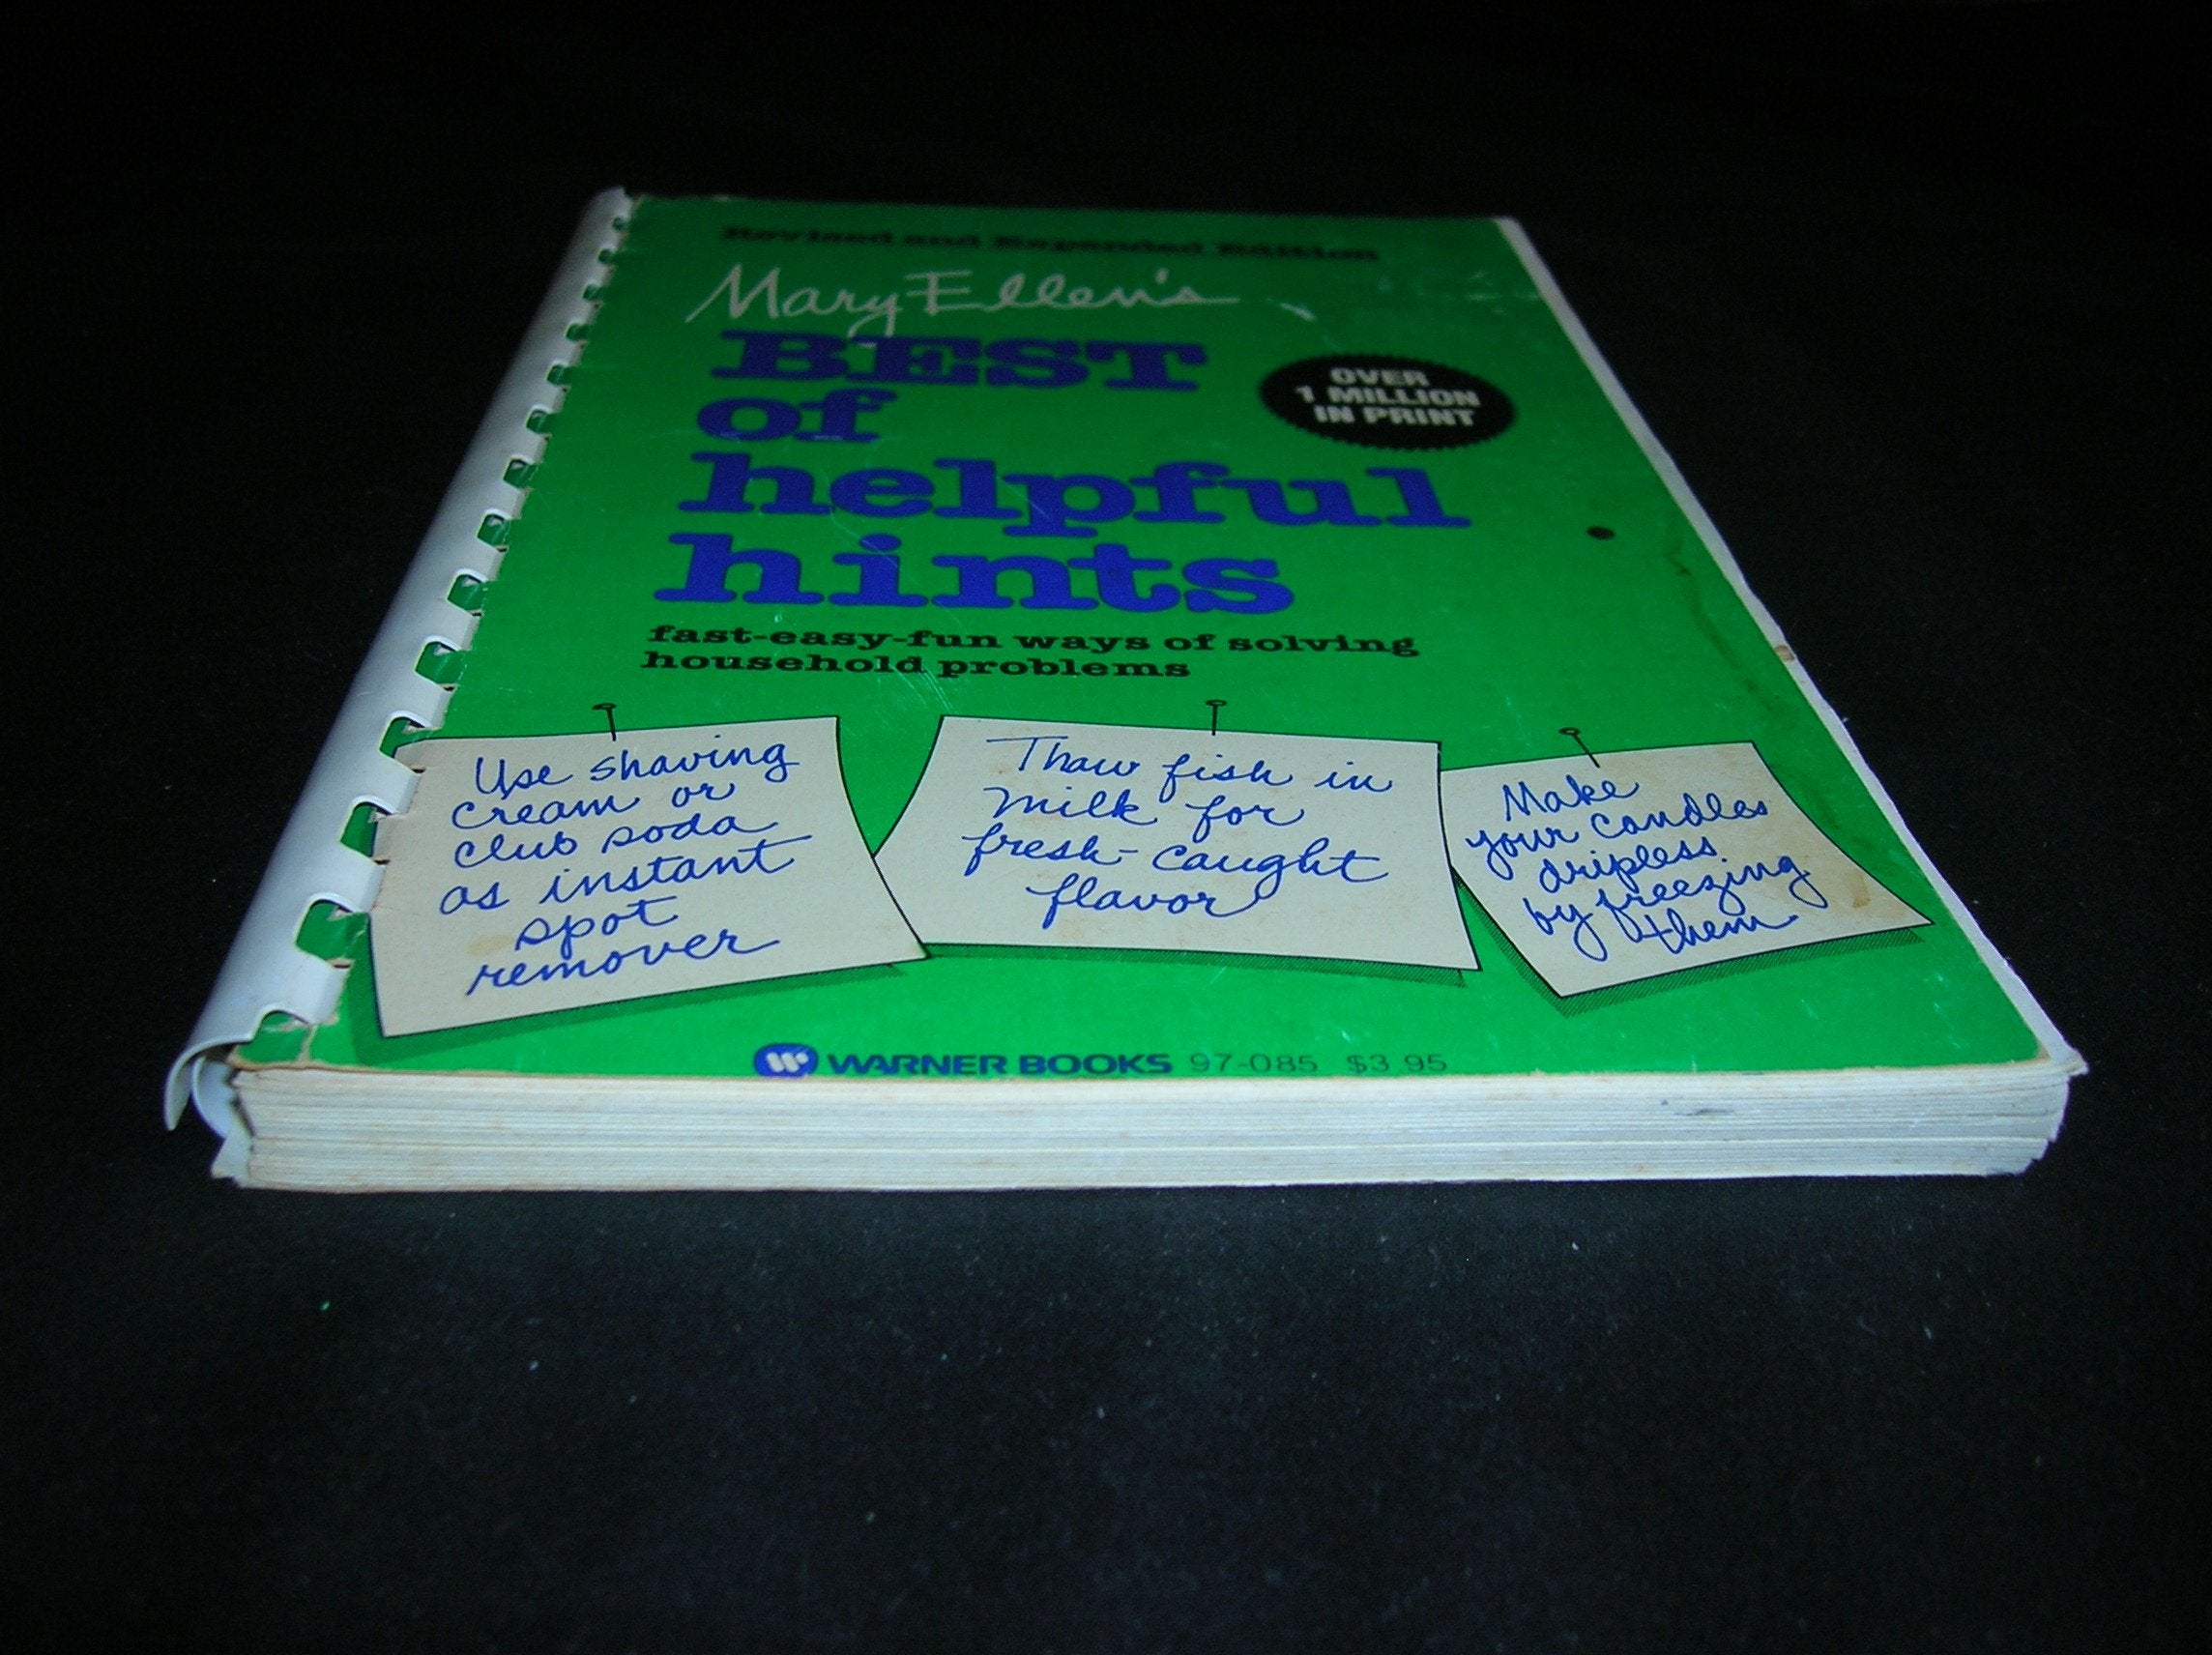 Revised and Expanded Edition
Mary Ellen's
BEST
of
helpful
hints
OVER
1 MILLION
IN PRINT
fast-easy-fun ways of solving
household problems
Use shaving
cream or
club soda
as instant
spot
remover
Thaw fish in
milk for
fresh-caught
flavor
Make
your candles
dripless
by freezing
them
WARNER BOOKS 97-085 $3.95